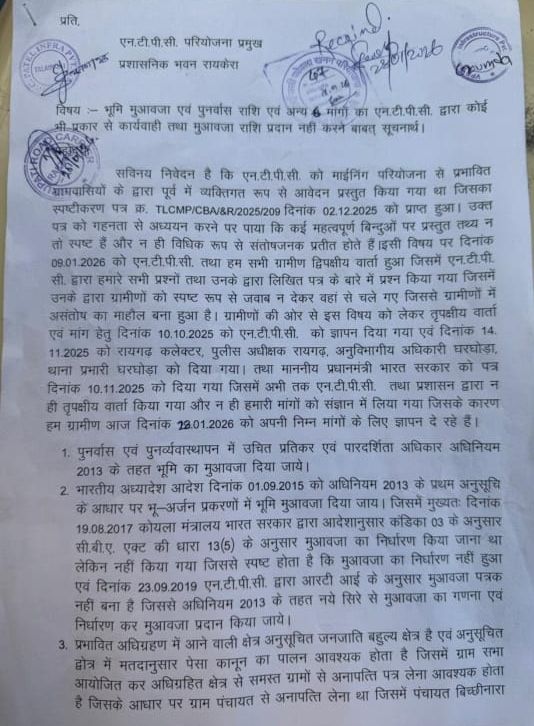 प्रति,
एन.टी.पी.सी. परियोजना प्रमुख
प्रशासनिक भवन रायकेरा
विषय :– भूमि मुआवजा एवं पुनर्वास राशि एवं अन्य 6 मांगों का एन.टी.पी.सी. द्वारा कोई
भी प्रकार से कार्यवाही तथा मुआवजा राशि प्रदान नही करने बाबत् सूचनार्थ।
सविनय निवेदन है कि एन.टी.पी.सी. को माईनिंग परियोजना से प्रभावित
ग्रामवासियों के द्वारा पूर्व में व्यक्तिगत रूप से आवेदन प्रस्तुत किया गया था जिसका
स्पष्टीकरण पत्र क्र. TLCMP/CBA/&R/2025/209 दिनांक 02.12.2025 को प्राप्त हुआ। उक्त
पत्र को गहनता से अध्ययन करने पर पाया कि कई महत्वपूर्ण बिन्दुओं पर प्रस्तुत तथ्य न
तो स्पष्ट हैं और न ही विधिक रूप से संतोषजनक प्रतीत होते हैं।इसी विषय पर दिनांक
09.01.2026 को एन.टी.पी.सी. तथा हम सभी ग्रामीण द्विपक्षीय वार्ता हुआ जिसमें एन.टी.पी.
सी. द्वारा हमारे सभी प्रश्नों तथा उनके द्वारा लिखित पत्र के बारे में प्रश्न किया गया जिसमें
उनके द्वारा ग्रामीणों को स्पष्ट रूप से जवाब न देकर वहां से चले गए जिससे ग्रामीणों में
असंतोष का माहौल बना हुआ है। ग्रामीणों की ओर से इस विषय को लेकर तृपक्षीय वार्ता
एवं मांग हेतु दिनांक 10.10.2025 को एन.टी.पी.सी. को ज्ञापन दिया गया एवं दिनांक 14.
11.2025 को रायगढ़ कलेक्टर, पुलीस अधीक्षक रायगढ़, अनुविभागीय अधिकारी घरघोड़ा,
थाना प्रभारी घरघोड़ा को दिया गया। तथा माननीय प्रधानमंत्री भारत सरकार को पत्र
दिनांक 10.11.2025 को दिया गया जिसमें अभी तक एन.टी.पी.सी. तथा प्रशासन द्वारा न
ही तृपक्षीय वार्ता किया गया और न ही हमारी मांगों को संज्ञान में लिया गया जिसके कारण
हम ग्रामीण आज दिनांक .01.2026 को अपनी निम्न मांगों के लिए ज्ञापन दे रहे हैं।
1. पुनर्वास एवं पुनर्व्यवास्थापन में उचित प्रतिकर एवं पारदर्शिता अधिकार अधिनियम
2013 के तहत भूमि का मुआवजा दिया जाये।
2. भारतीय अध्यादेश आदेश दिनांक 01.09.2015 को अधिनियम 2013 के प्रथम अनुसूचि
के आधार पर भू–अर्जन प्रकरणों में भूमि मुआवजा दिया जाय। जिसमें मुख्यतः दिनांक
19.08.2017 कोयला मंत्रालय भारत सरकार द्वारा आदेशानुसार कंडिका 03 के अनुसार
सी.बी.ए. एक्ट की धारा 13(5) के अनुसार मुआवजा का निर्धारण किया जाना था
लेकिन नहीं किया गया जिससे स्पष्ट होता है कि मुआवजा का निर्धारण नहीं हुआ
एवं दिनांक 23.09.2019 एन.टी.पी.सी. द्वारा आरटी आई के अनुसार मुआवजा पत्रक
नहीं बना है जिससे अधिनियम 2013 के तहत नये सिरे से मुआवजा का गणना एवं
निर्धारण कर मुआवजा प्रदान किया जाये।
3. प्रभावित अधिग्रहण में आने वाली क्षेत्र अनुसूचित जनजाति बहुल्य क्षेत्र है एवं अनुसूचित
द्वोत्र में मतदानुसार पेसा कानून का पालन आवश्यक होता है जिसमें ग्राम सभा
आयोजित कर अधिग्रहित क्षेत्र से समस्त ग्रामों से अनापत्ति पत्र लेना आवश्यक होता
है जिसके आधार पर ग्राम पंचायत से अनापत्ति लेना था जिसमें पंचायत बिच्छीनारा